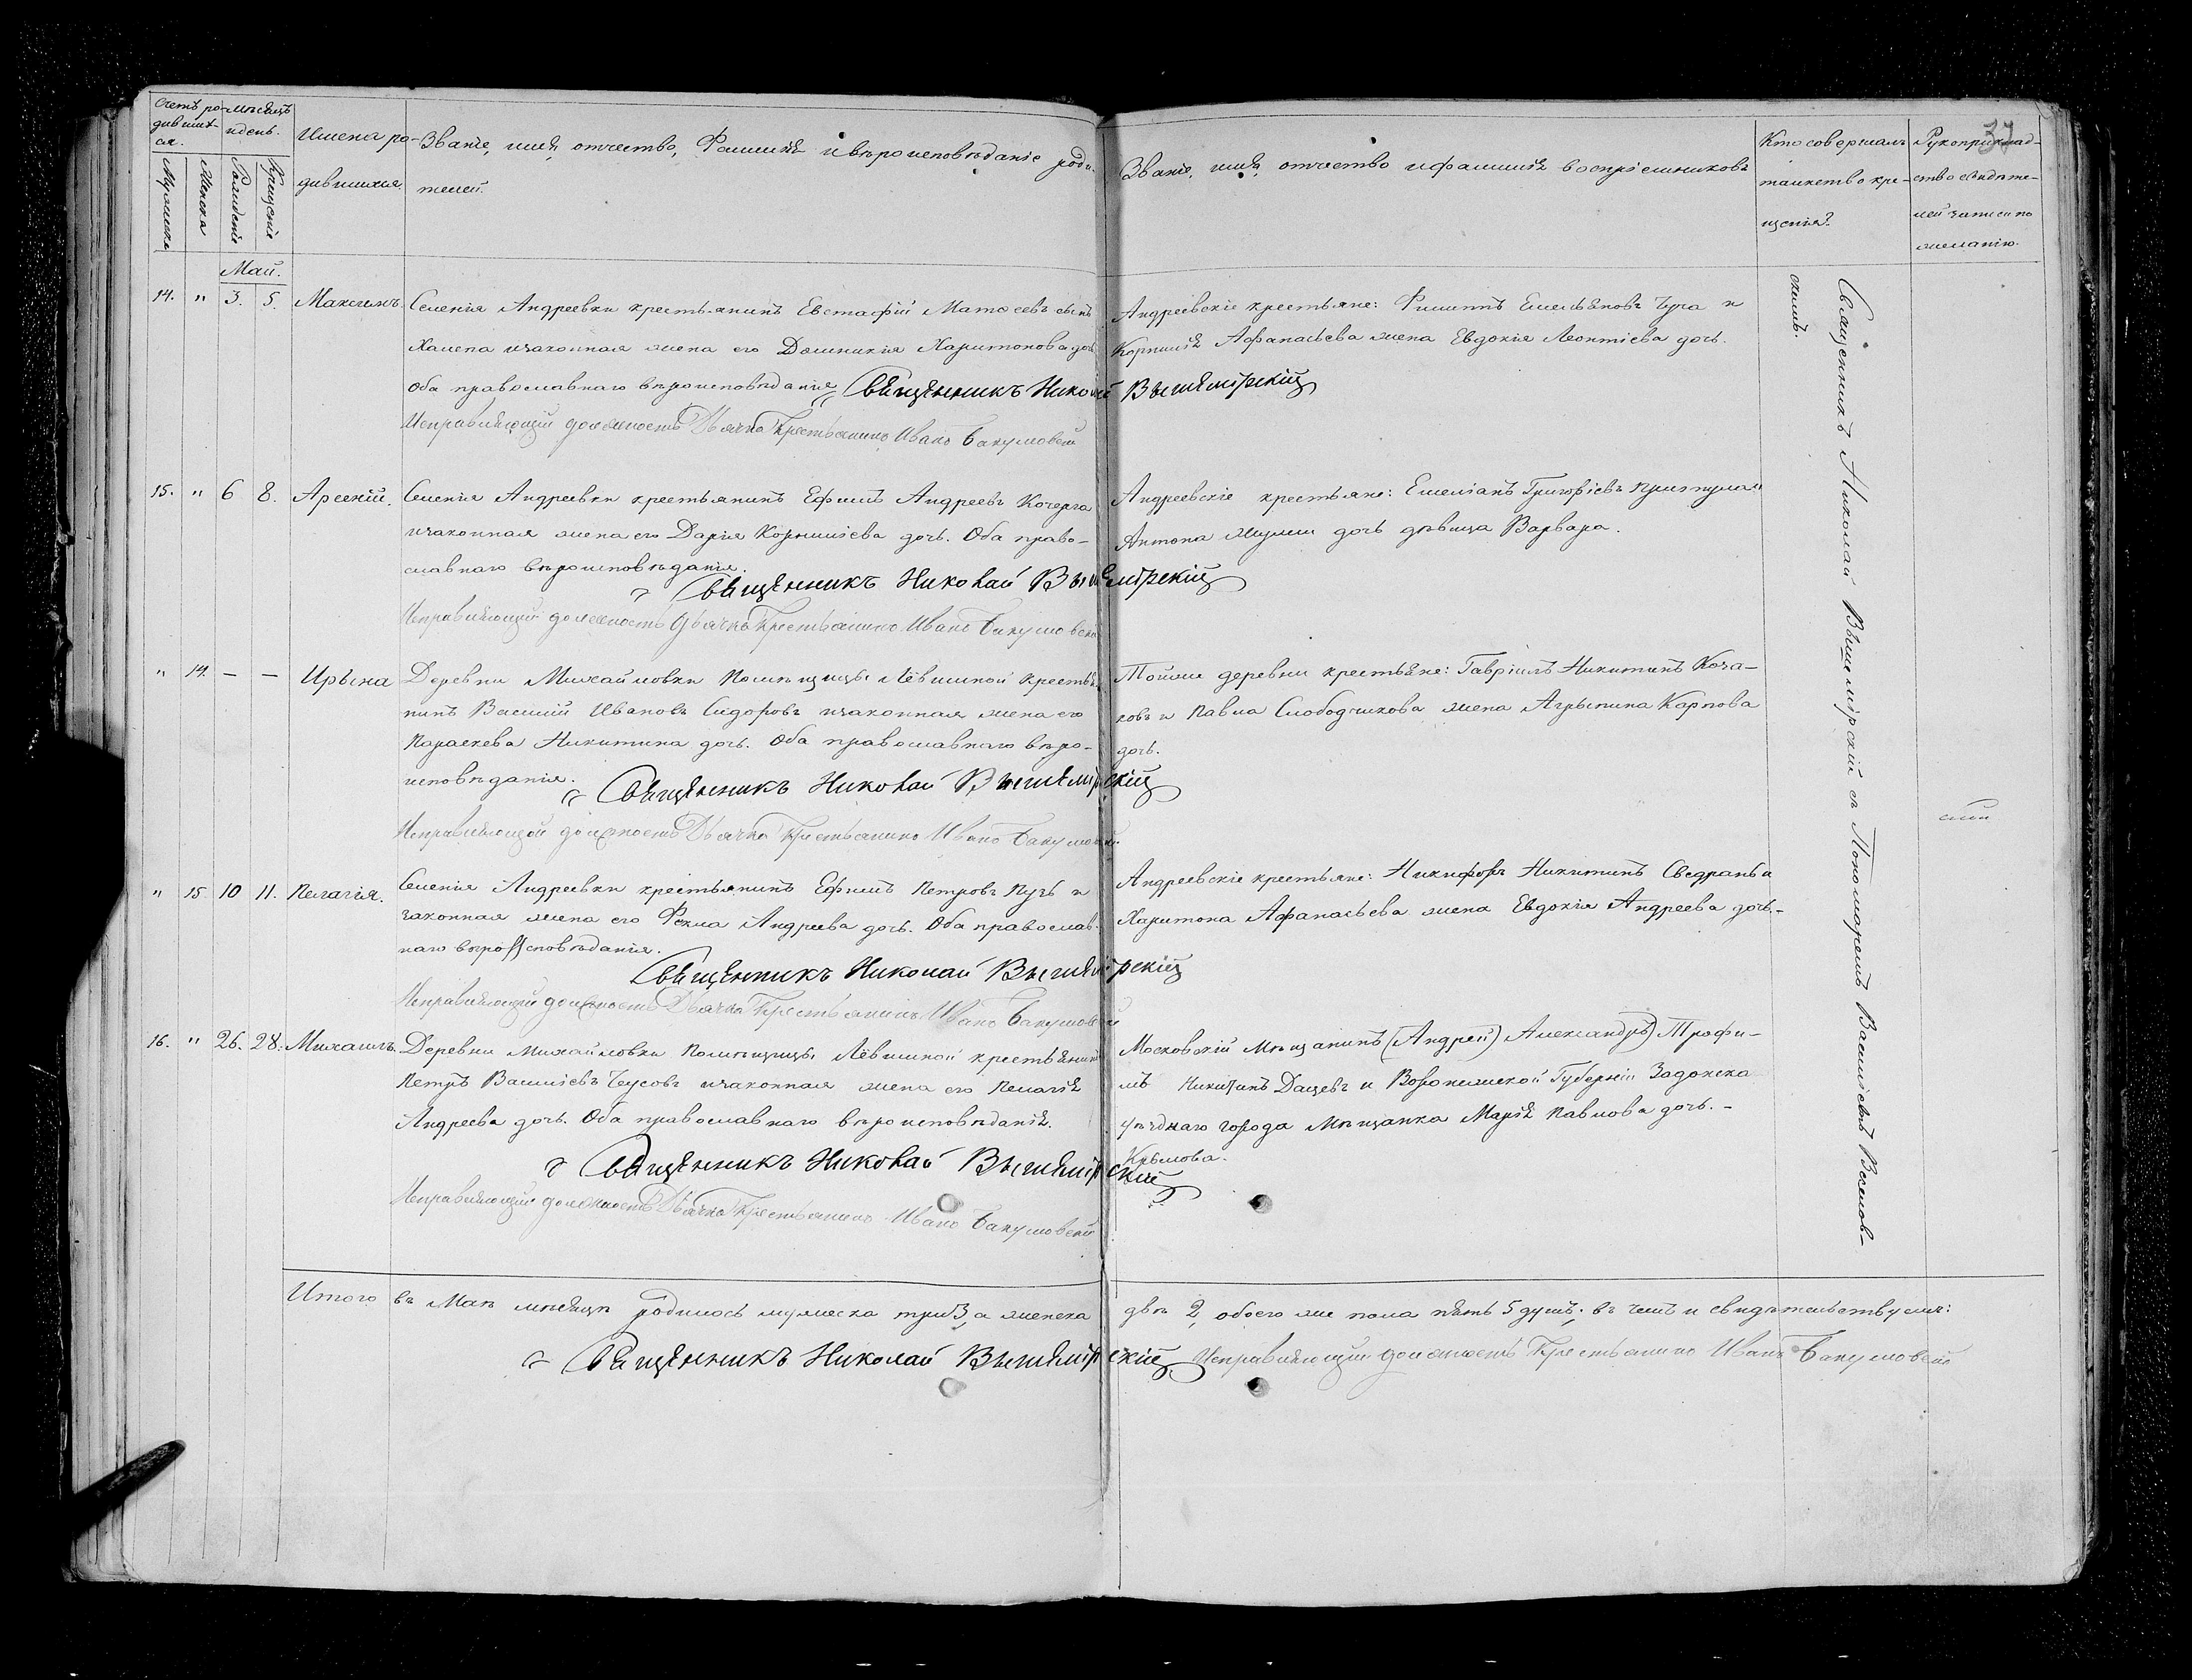 37
Счетъ ро-
дивших-
ся.
Мѣсяцъ
и день.
Имена ро-
дившихся
Званіе, имя, отчество, Фамилія и вѣроисповѣданіе роди-
телей.
Званіе, имя, отчество и фамилія воспріемниковъ
Кто совершалъ
таинство кре-
щенія?
Рукоприклад-
ство свидѣте-
лей записи по
желанію.
Мужеска
Женска
Рожденіе
Крещеніе
Май.
14. " 3. 5. Максимъ.
Селенія Андреевки крестьянинъ Евстафій Матѳеевъ сынъ
Халепа и законная жена его Домникія Харитонова дочь
Оба православнаго вѣроисповѣданія
Священникъ Николай Вышемірскій
Исправляющій должность Дьячка Крестьянинъ Иванъ Бакумовскій
Андреевскіе крестьяне: Филиппъ Емельяновъ Чуга и
Корнилія Афанасьева жена Евдокія Леонтіева дочь.
15. " 6 8. Арсеній.
Селенія Андреевки крестьянинъ Ефимъ Андреевъ Кочерга
и законная жена его Дарія Корниліева дочь. Оба право-
славнаго вѣроисповѣданія.
Священникъ Николай Вышемірскій
Исправляющій должность Дьячка Крестьянинъ Иванъ Бакумовскій
Андреевскіе крестьяне: Емеліанъ Григоріевъ Притула и
Антона дочь дѣвица Варвара.
" 14. – – Ирына
Деревни Михайловки Помѣщицы Лёвшиной крестья-
нинъ Василій Ивановъ Сидоровъ и законная жена его
Параскева Никитина дочь. Оба православнаго вѣро-
исповѣданія.
Священникъ Николай Вышемірскій
Исправляющій должность Дьячка Крестьянинъ Иванъ Бакумовскій
Тойже деревни крестьяне: Гавріилъ Никитинъ Коза-
ковъ и Павла Слободчикова жена Агрыпина Карпова
дочь.
" 15 10 11. Пелагія.
Селенія Андреевки крестьянинъ Ефимъ Петровъ Пузь и
законная жена его Фекла Андреева дочь. Оба православ-
наго вѣроисповѣданія.
Священникъ Николай Вышемірскій
Исправляющій должность Дьячка Крестьянинъ Иванъ Бакумовскій
Андреевскіе крестьяне: Никифоръ Никитинъ и
Харитона Афанасьева жена Евдокія Андреева дочь.-
16. " 26. 28. Михаилъ.
Деревни Михайловки Помѣщицы Лёвшиной крестьянинъ
Петръ Василіевъ Чусовъ и законная жена его Пелагія
Андреева дочь. Оба православнаго вѣроисповѣданія.
Священникъ Николай Вышемірскій
Исправляющій должность Дьячка Крестьянинъ Иванъ Бакумовскій
Московскій Мѣщанинъ (Андрей) Александръ) Трофи-
мъ Никитинъ Дацевъ и Воронежской Губерніи Задонска
уѣзднаго города Мѣщанка Марія Павлова дочь. -
Крымова.
Священникъ Николай Вышемірскій съ Пономаремъ Василіемъ Волков-
скимъ.
Итого въ Маѣ мѣсяцѣ родилось мужеска три 3, а женска двѣ 2, обоего же пола пять 5 душъ; въ чемъ и свидѣтельствуемъ:
Священникъ Николай Вышемірскій Исправляющій должность Крестьянинъ Иванъ Бакумовскій